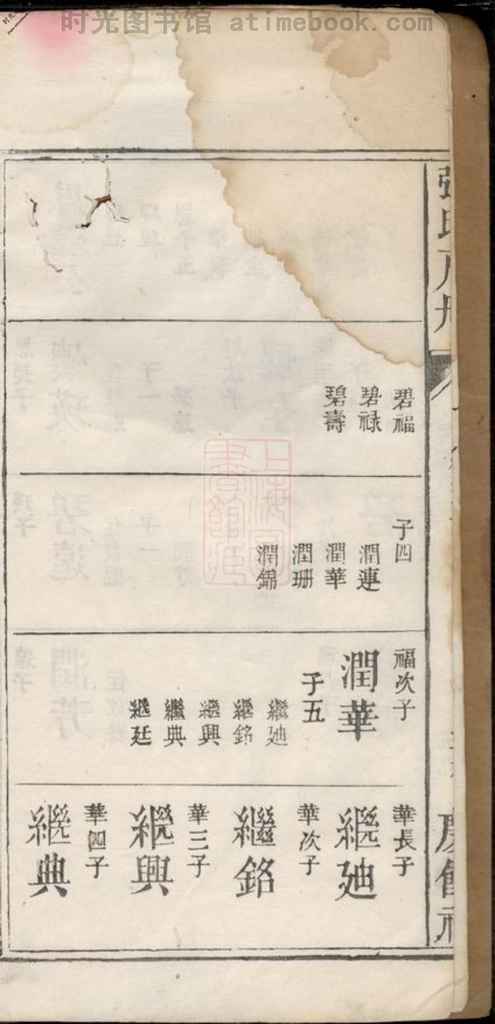 时光图书馆 atimebook.com
碧福
碧禄
碧壽
子四
潤蓮
潤華
潤珊
潤錦
福次子
潤華
子五
繼廸
繼銘
繼興
繼典
繼廷
華長子
繼廸
華次子
繼銘
華三子
繼興
華四子
繼典